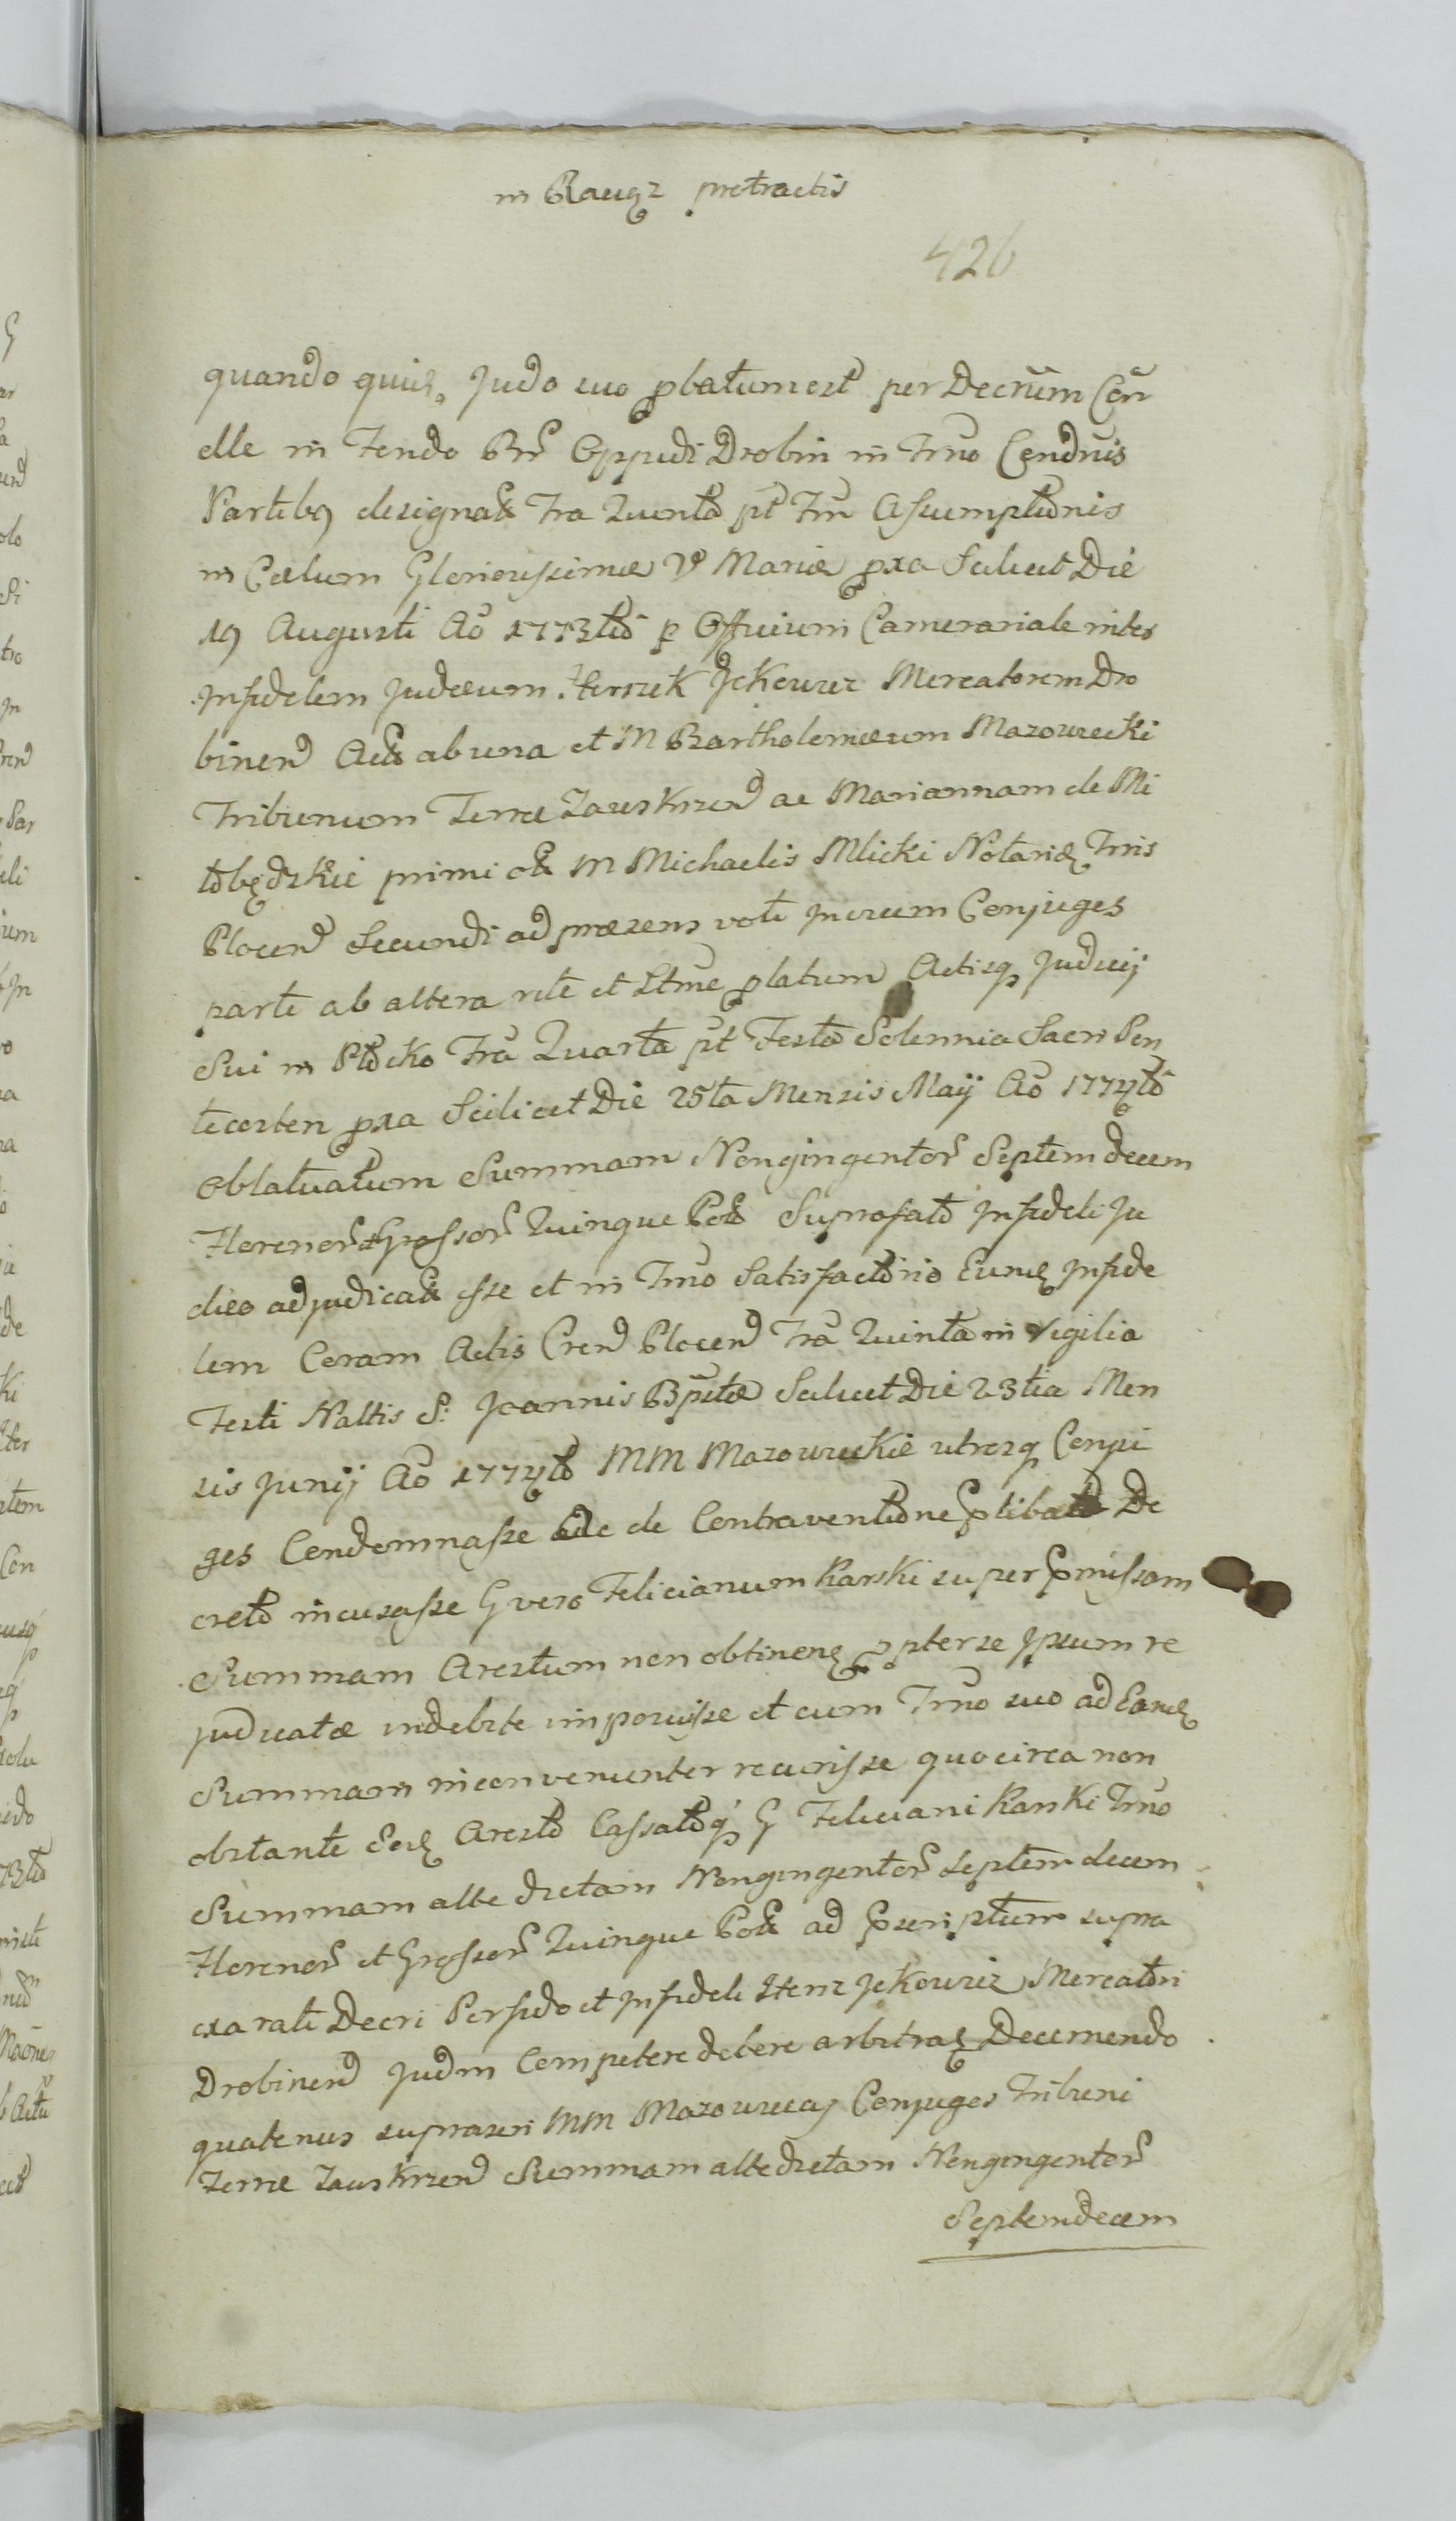 in Raugz protractis
426
quando quid. Judo suo platum est per Decrum Con
elle in Fendo Bn̄ Oppidi Drobin in Tm̄o Condnis
Partibq designat Fra Quinta pt Fm Assumptionis
in Cœlum Gloriosissimæ V Mariæ pxa Scilicet Die
19 Augusti Ao 1773tio p Officium Camerariale inter
Infidelem Judæum Herszek Jekowicz Mercatorem Dro
binen Act ab una et M Bartholomæum Mazowiecki
Tribunum Terræ Zawskrzen ac Mariannam de Mi
tobędzkie primi ot M Michaelis Mlicki Notarij Tris
Plocen Secundi ad præsens voti Invicem Conjuges
parte ab altera rite et Ltme platum Actisq Judicij
Sui in Płocko Fra Quarta pt Festa Solennia Sacri Pen
tecosten pxa Scilicet Die 25ta Mensis Maij Ao 1774to
oblatuatum Summam Nongingentor Septemdecem
Florenor et Grossor Quinque Pol Suprafato Infideli Ju
dæo adjudicat esse et in Tm̄o Satisfactorio Eund Infide
lem Coram Actis Cren Plocen Fra Quinta in Vigilia
Festi Natlis S. Joannis Bpstæ Scilicet Die 23tia Men
sis Junij Ao 1774to MM Mazowieckie utrosq Conju
ges Condemnasse de Contraventione plibato De
creto incusasse G vero Felicianum Karski super pmissam
Summam Arestum non obtinend ppter se Ipsum re
judicatæ indebite imposuisse et cum Tm̄o suo ad Eand
Summam inconvenienter recurisse quocirca non
obstante Eod Aresto Cassatoq G Feliciani Karski Tm̄o
Summam alte dictam Nongingentor Septem decem
Florenor et Grossor Quinque Pol ad pscriptum supra
exarati Decri Perfido et Infideli Hersz Jekowicz Mercatori
Drobinen Judm Competere debere arbitrad Decernendo
quatenus suprascri MM Mazowieccy Conjuges Tribuni
Terræ Zawskrzen Summam altedictam Nongingentor
Septemdecem